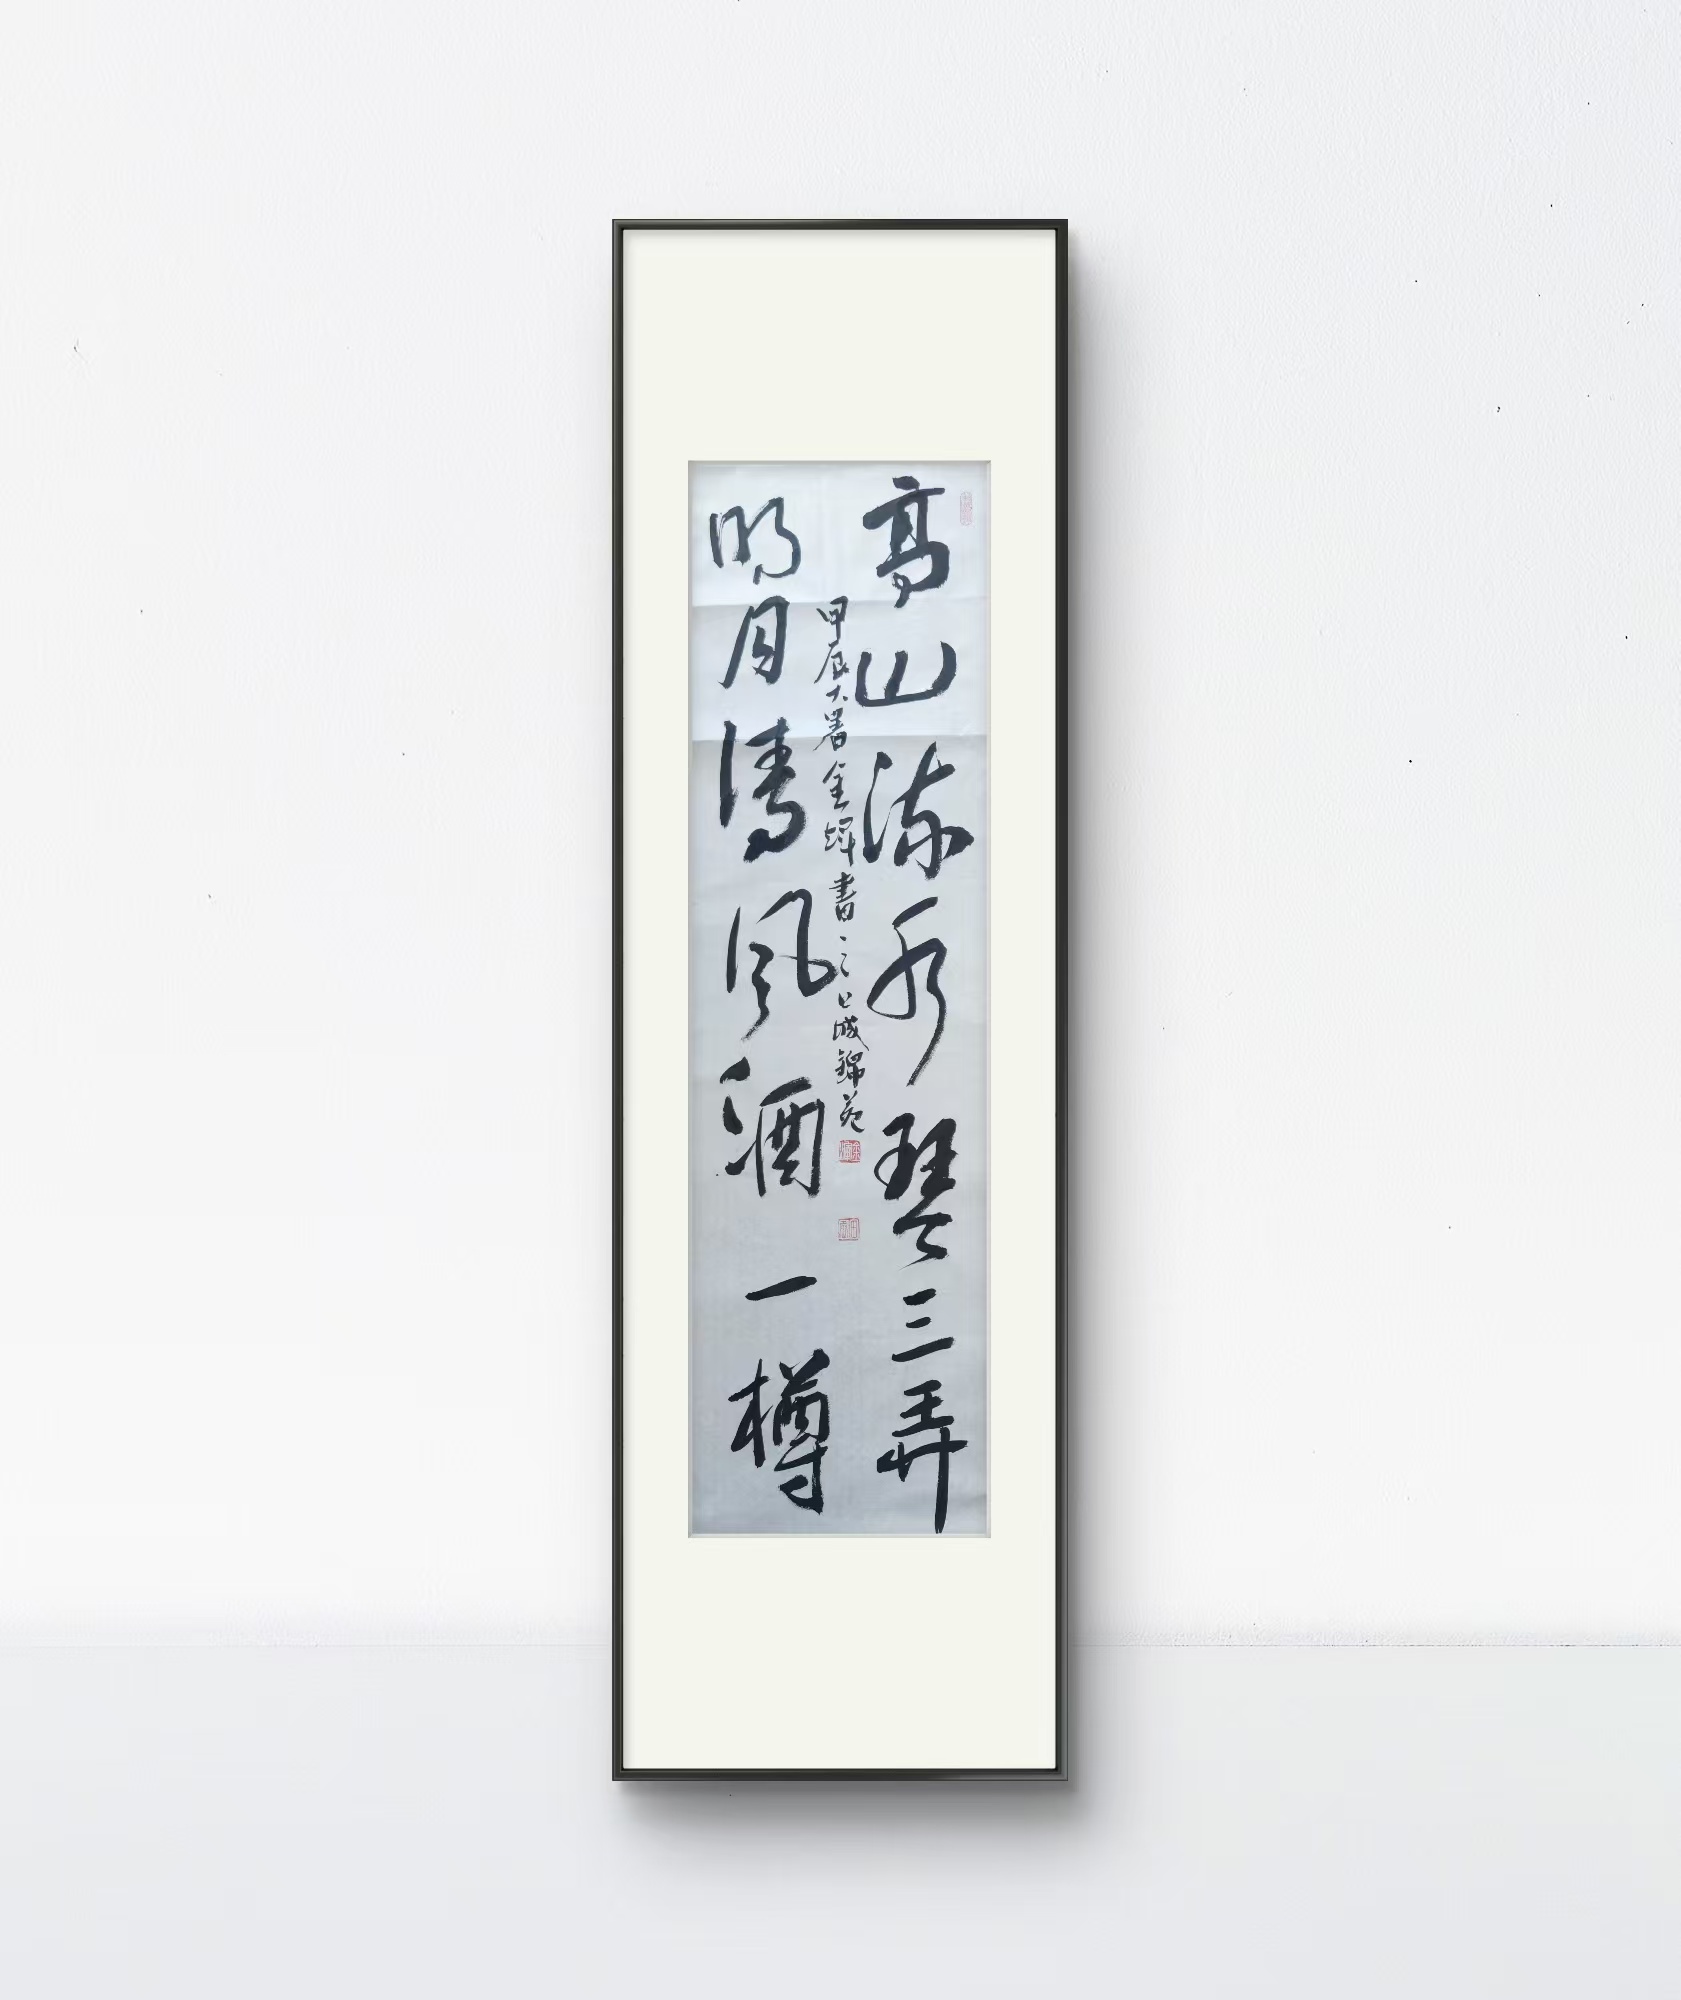 高山流水琴三弄
明月清风酒一樽
甲辰大暑金辉書之于成錦苑